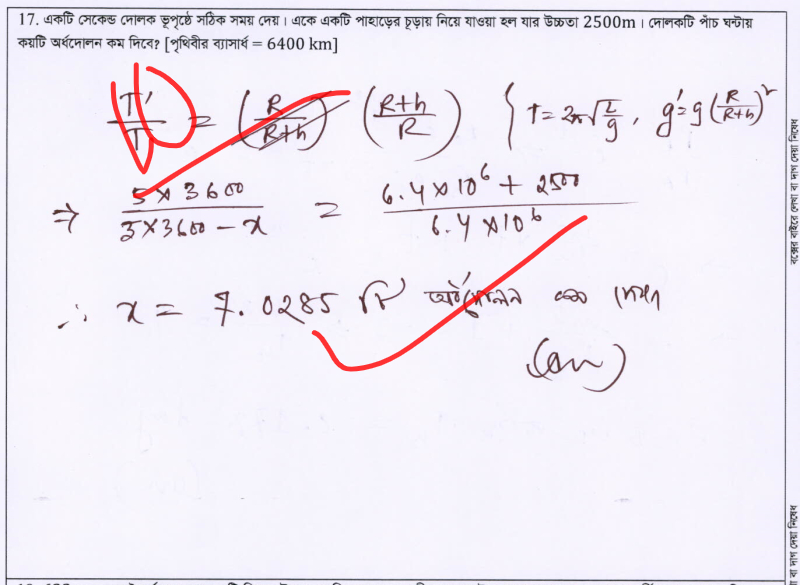 17. একটি সেকেন্ড দোলক ভূপৃষ্ঠে সঠিক সময় দেয়। একে একটি পাহাড়ের চূড়ায় নিয়ে যাওয়া হল যার উচ্চতা 2500m। দোলকটি পাঁচ ঘন্টায়
কয়টি অর্ধদোলন কম দিবে? [পৃথিবীর ব্যাসার্ধ = 6400 km]
T'/T = (R/R+h) (R+h/R) { T = 2π√(L/g), g' = g(R/R+h)²
⇒ 5×3600 / 5×3600 - x = 6.4×10⁶ + 2500 / 6.4×10⁶
∴ x = 7.0285 টি অর্ধদোলন কম দেবে
(Ans)
বক্সের বাইরে লেখা বা দাগ দেয়া নিষেধ
বা দাগ দেয়া নিষেধ